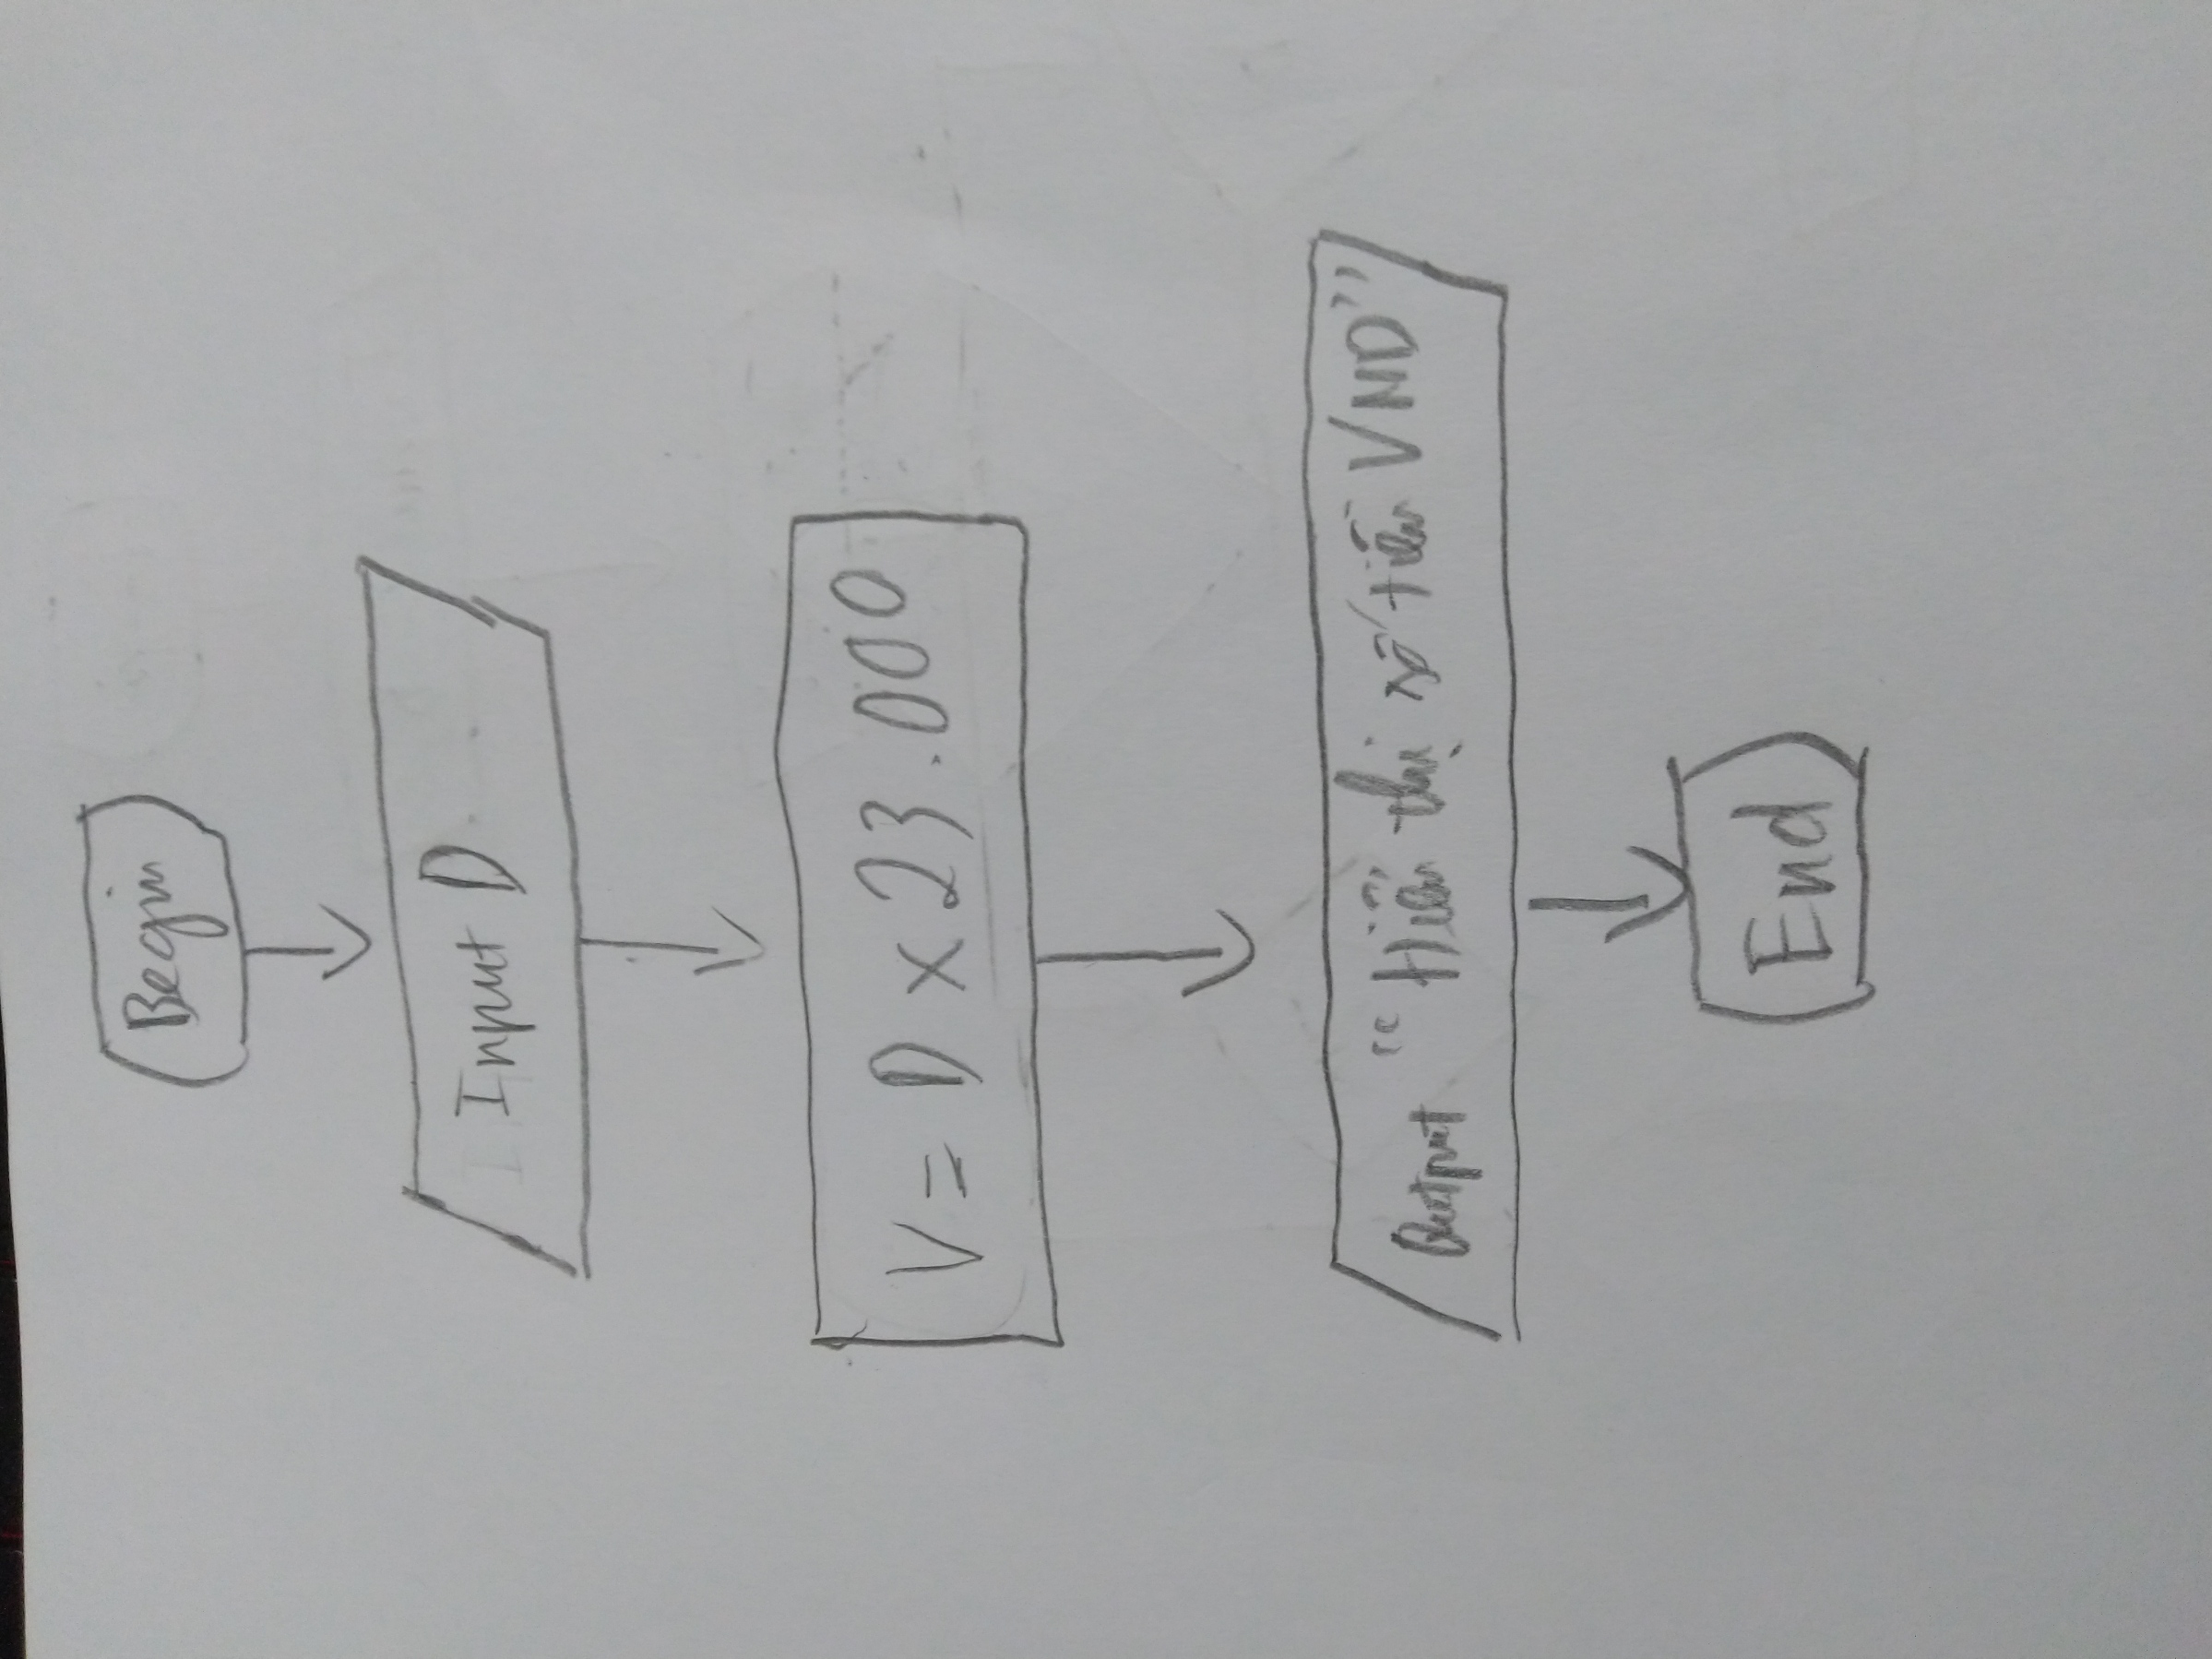 Begin
Input D
V = D x 23.000
Output "Hiển thị số tiền VND"
End